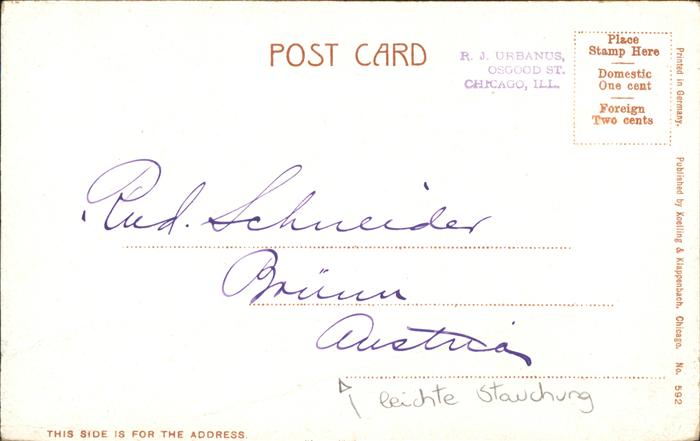 POST CARD
R. J. URBANUS,
OSGOOD ST.
CHICAGO, ILL.
Place
Stamp Here
Domestic
One cent
Foreign
Two cents
Printed in Germany.
Published by Koelling & Klappenbach, Chicago. No. 592
Rud. Schneider
Brünn
Austria
leichte Stauchung
THIS SIDE IS FOR THE ADDRESS.